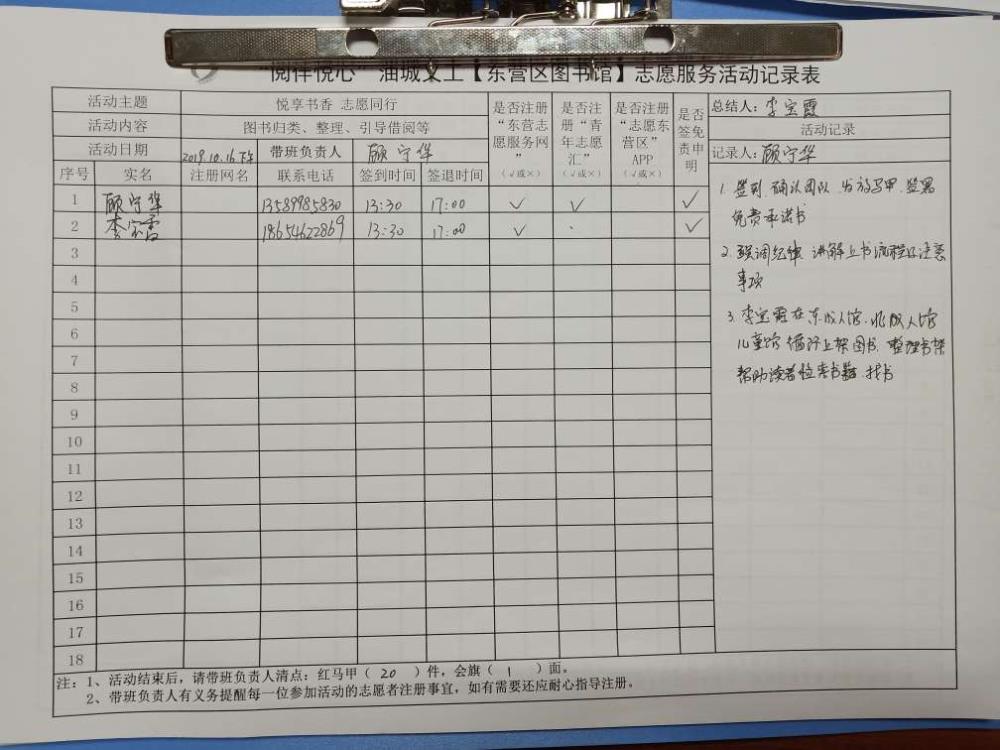 “阅伴悦心”油城义工【东营区图书馆】志愿服务活动记录表
活动主题 悦享书香 志愿同行
活动内容 图书归类、整理、引导借阅等
活动日期 2019.10.16下午 带班负责人 顾守华
是否注册“东营志愿服务网”（√或×）
是否注册“青年志愿汇”（√或×）
是否注册“志愿东营区”APP（√或×）
是否签免责申明
总结人：李宝霞
活动记录
记录人：顾守华
序号 实名 注册网名 联系电话 签到时间 签退时间
1 顾守华 13589985830 13:30 17:00 √ √ √
2 李宝霞 18654622869 13:30 17:00 √ √
3
4
5
6
7
8
9
10
11
12
13
14
15
16
17
18
1. 签到、确认团队、发放马甲、签署
免责承诺书
2. 强调纪律、讲解上书流程及注意
事项
3. 李宝霞在东成人馆、北成人馆
儿童馆 循环上架图书、整理书架
帮助读者检索书籍、找书
注：1、活动结束后，请带班负责人清点：红马甲（20）件，会旗（1）面。
2、带班负责人有义务提醒每一位参加活动的志愿者注册事宜，如有需要还应耐心指导注册。